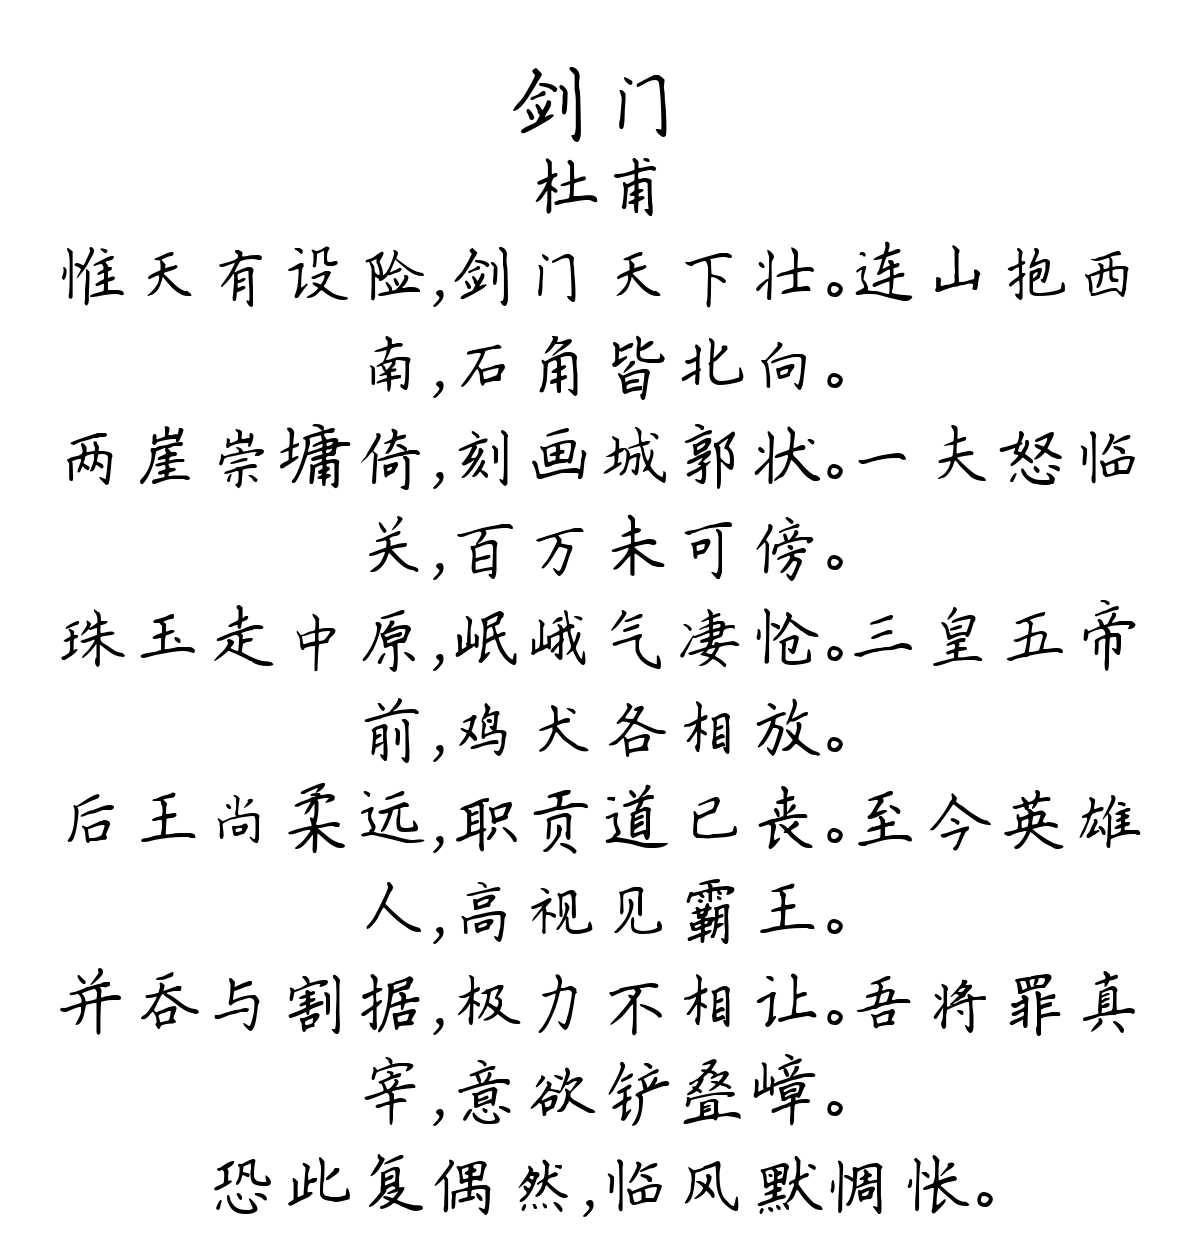 剑门
杜甫
惟天有设险,剑门天下壮。连山抱西
南,石角皆北向。
两崖崇墉倚,刻画城郭状。一夫怒临
关,百万未可傍。
珠玉走中原,岷峨气凄怆。三皇五帝
前,鸡犬各相放。
后王尚柔远,职贡道已丧。至今英雄
人,高视见霸王。
并吞与割据,极力不相让。吾将罪真
宰,意欲铲叠嶂。
恐此复偶然,临风默惆怅。